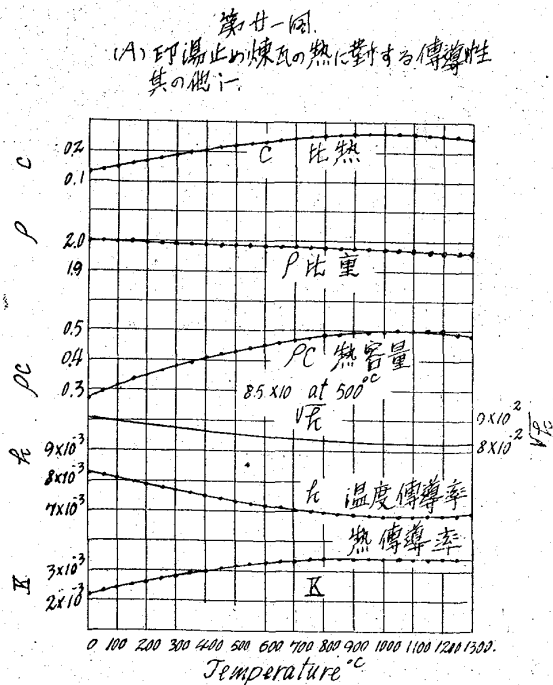 第廿一圖.
(A) 印湯止め煉瓦の熱に對する傳導性
其の他
C
0.2
0.1
C 比熱
ρ
2.0
1.9
ρ 比重
ρC
0.5
0.4
0.3
ρC 熱容量
8.5×10 at 500°C
√h
9×10²
8×10⁻²
√h
h
9×10⁻³
8×10⁻³
7×10⁻³
h 温度傳導率
熱傳導率
K
3×10⁻³
2×10⁻³
K
0 100 200 300 400 500 600 700 800 900 1000 1100 1200 1300
Temperature °C